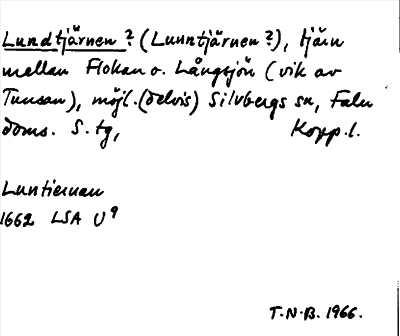 Lundtjärnen? (Lunntjärnen?), tjärn
mellan Flokan o. Långsjön (vik av
Tunsan), möjl. (delvis) Silvbergs sn, Falu
doms. S. tg, Kopp.l.
Luntiernan
1662 LSA U9
T.N.B. 1966.